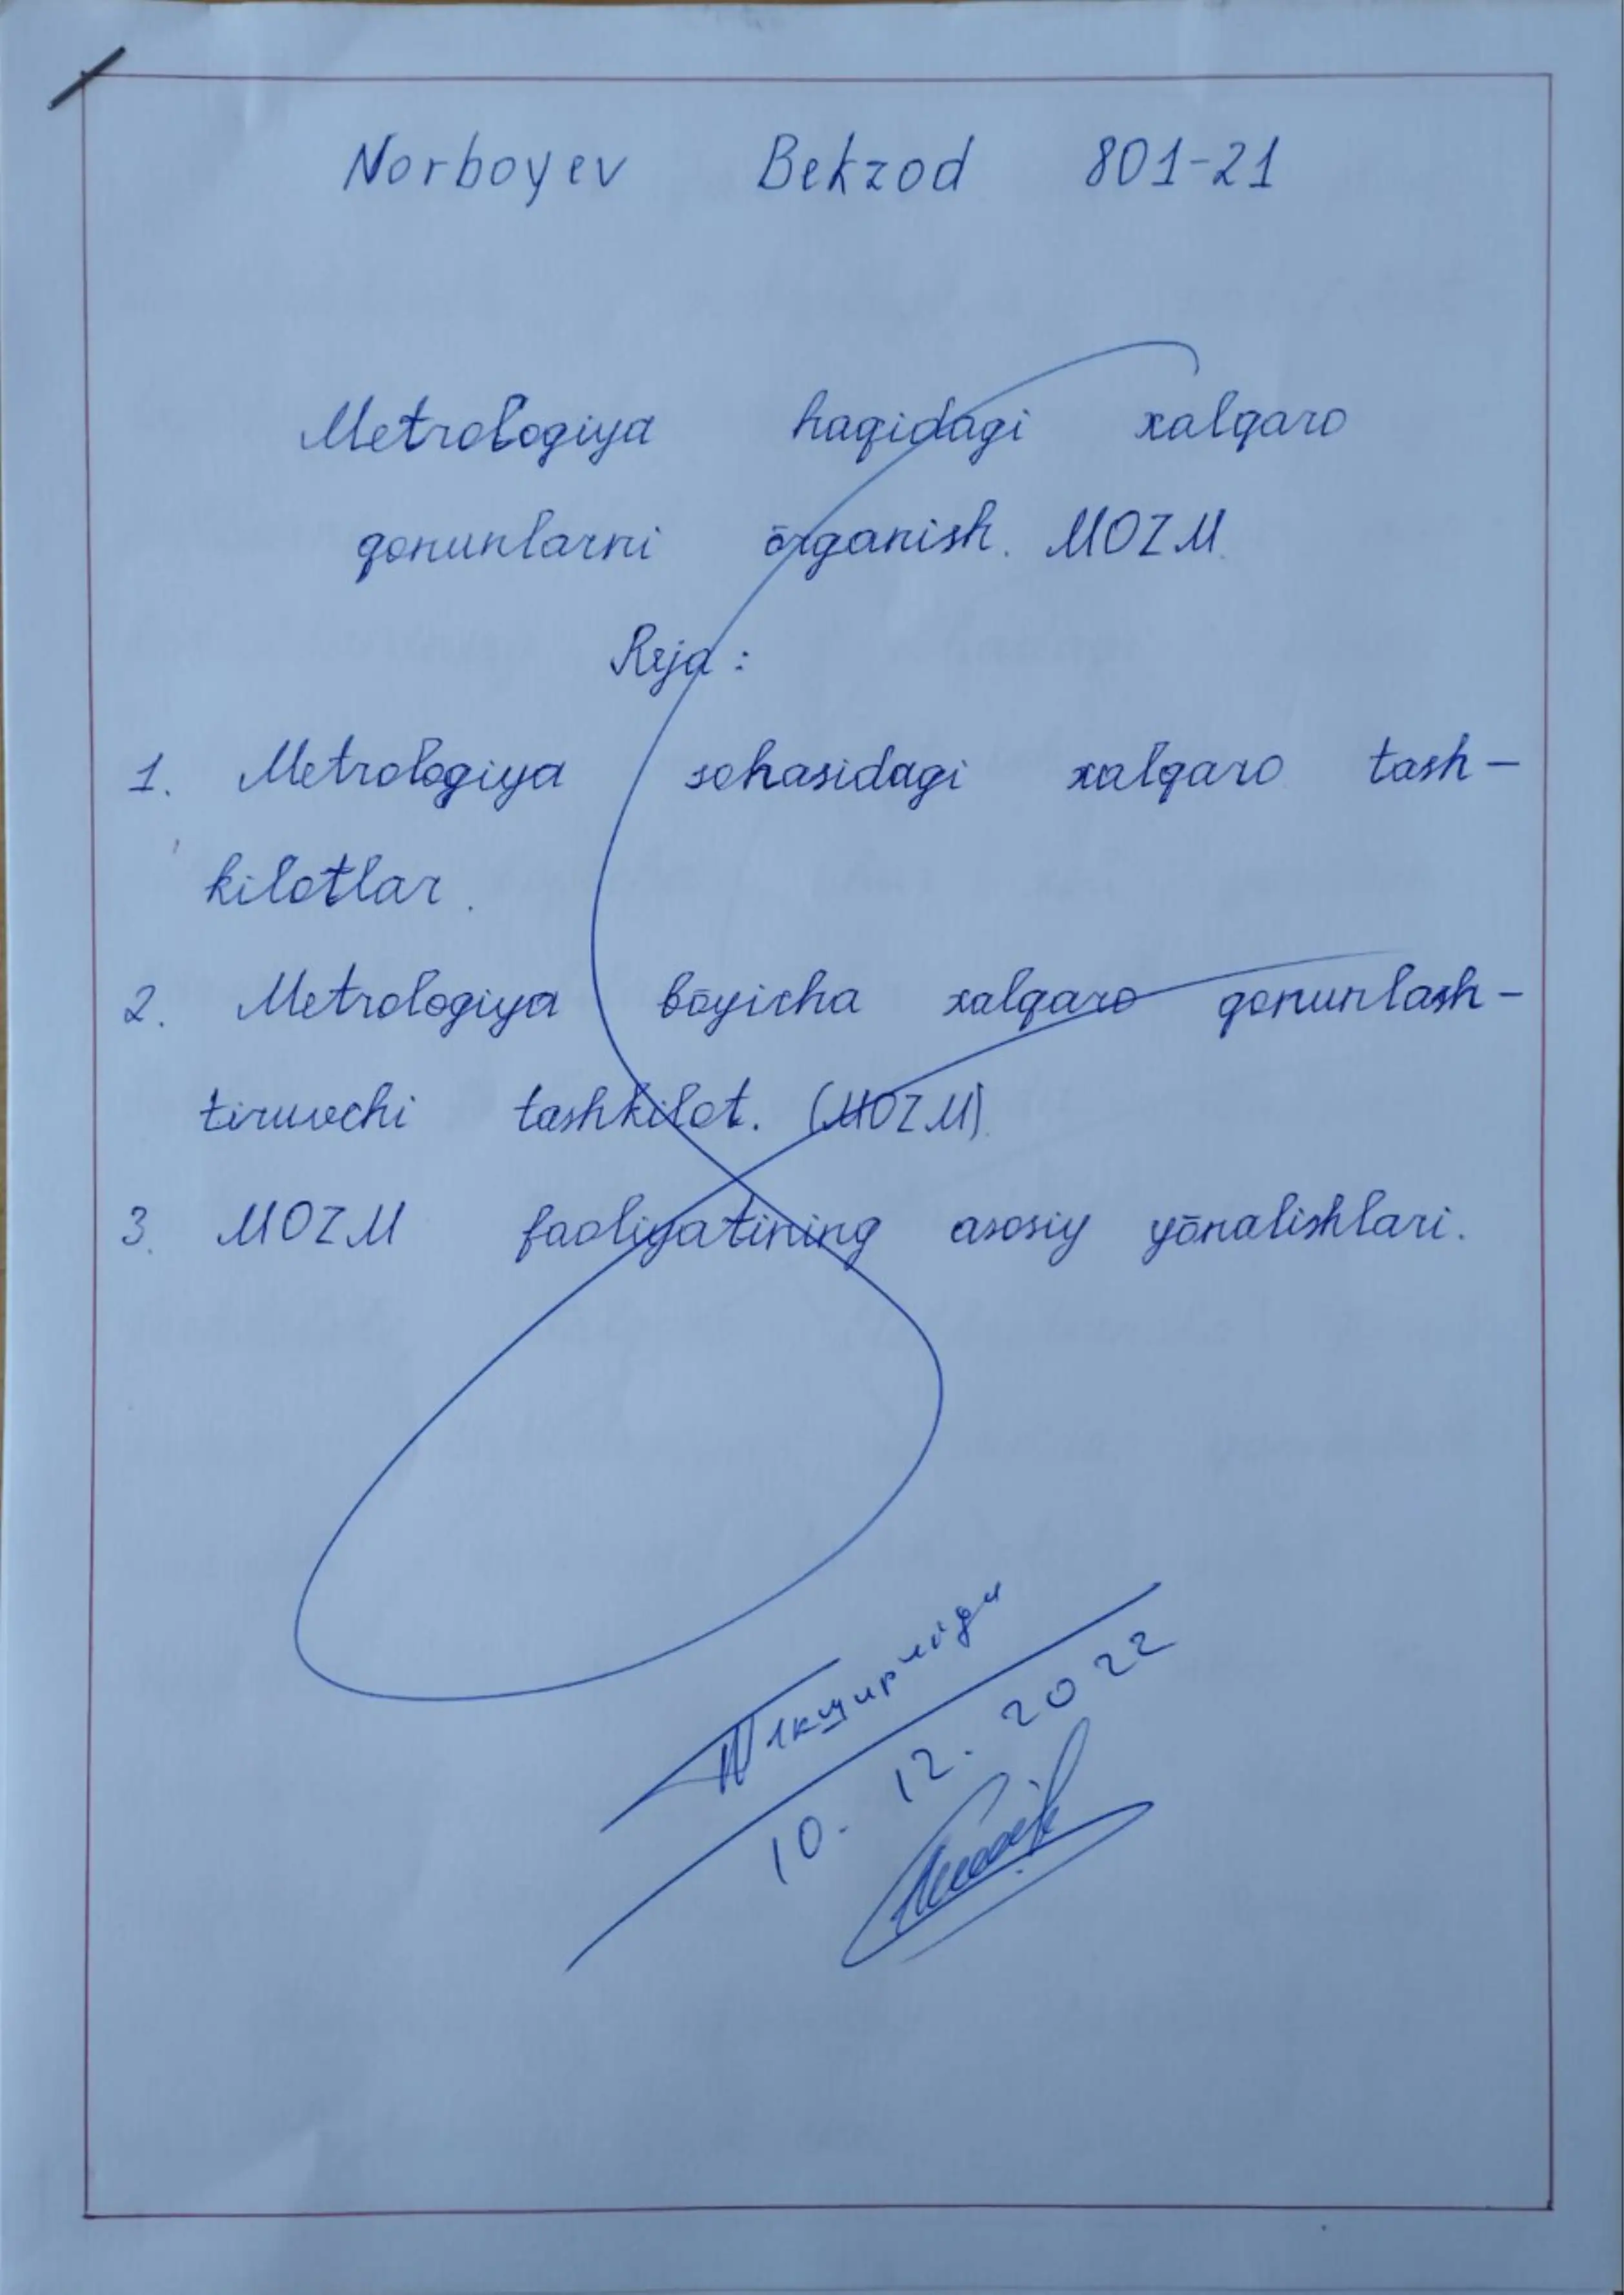 Norboyev Bekzod 801-21
Metrologiya haqidagi xalqaro
qonunlarni ōrganish. MOZM.
Reja:
1. Metrologiya sohasidagi xalqaro tash-
kilotlar.
2. Metrologiya bōyicha xalqaro qonunlash-
tiruvchi tashkilot. (MOZM).
3. MOZM faoliyatining asosiy yōnalishlari.
10.12.2022